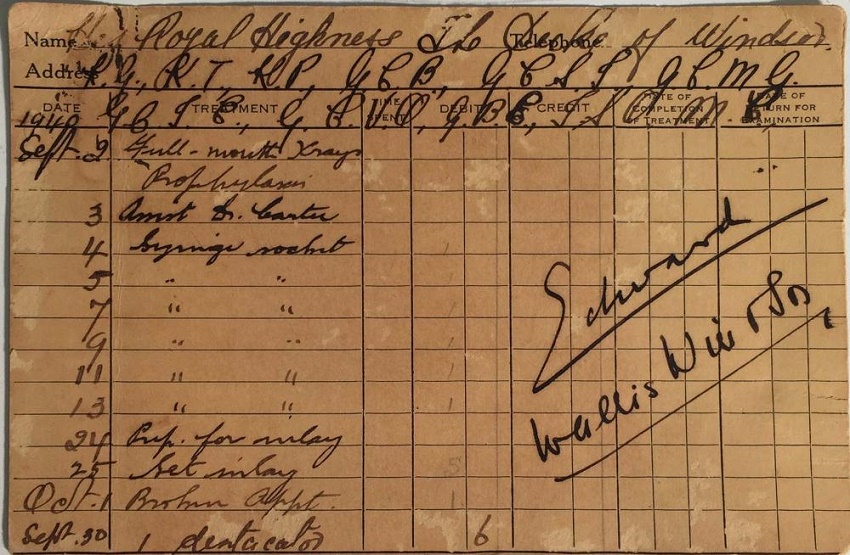 Name His Royal Highness The Duke of Windsor. Telephone
Address K.G., K.T., K.P., G.C.B., G.C.S.I., G.C.M.G.
DATE TREATMENT TIME SPENT DEBIT CREDIT DATE OF COMPLETION OF TREATMENT DATE OF RETURN FOR EXAMINATION
1940 G.C.I.E., G.C.V.O., G.B.E., I.S.O., M.C.
Sept. 2 Full-mouth Xrays
Prophylaxis
3 Assist Dr. Carter
4 Syringe socket 1
5 " " 1
7 " " 1
9 " " 1
11 " " 1
13 " " 1
24 Prep. for inlay
25 Set inlay 5
Oct. 1 Broken Appt. 1
Sept. 30 1 6
Edward
Wallis Windsor